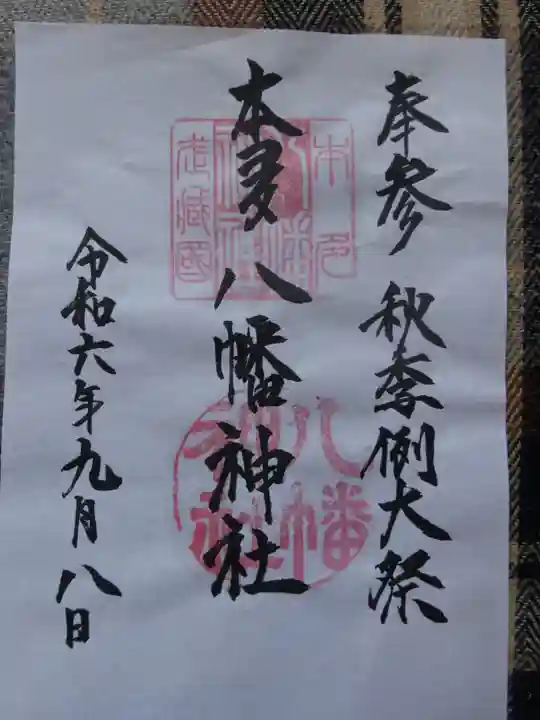 奉参 秋季例大祭
本多八幡神社
令和六年九月八日
八幡
神社